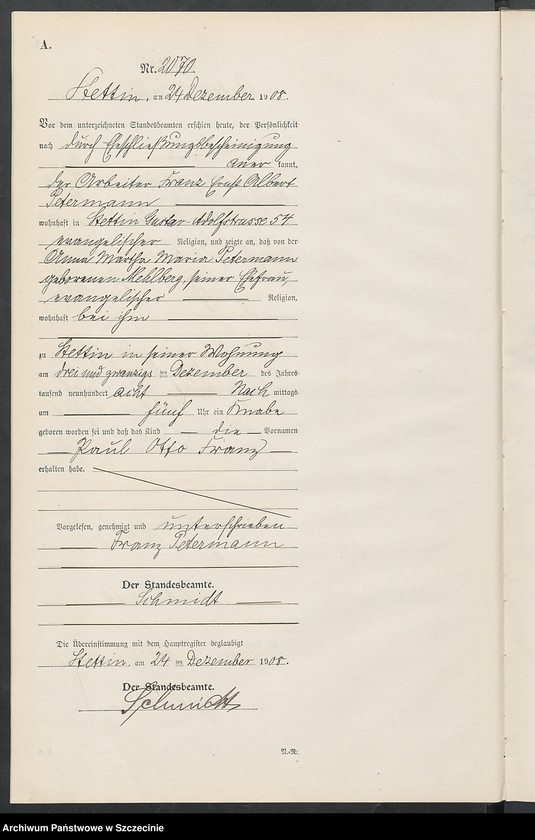 A.
Nr. 2070.
Stettin, am 24 Dezember 1908.
Vor dem unterzeichneten Standesbeamten erschien heute, der Persönlichkeit
nach durch Eheschließungsbescheinigung
aner kannt,
der Arbeiter Franz Ernst Albert
Petermann
wohnhaft in Stettin Gustav Adolfstrasse 54
evangelischer Religion, und zeigte an, daß von der
Anna Martha Maria Petermann
geborenen Mehlberg, seiner Ehefrau,
evangelischer Religion,
wohnhaft bei ihm
zu Stettin in seiner Wohnung
am drei und zwanzigs ten Dezember des Jahres
tausend neunhundert acht Nach mittags
um fünf Uhr ein Knabe
geboren worden sei und daß das Kind die Vornamen
Paul Otto Franz
erhalten habe.
Vorgelesen, genehmigt und unterschrieben
Franz Petermann
Der Standesbeamte.
Schmidt
Die Übereinstimmung mit dem Hauptregister beglaubigt
Stettin, am 24 ten Dezember 1908.
Der Standesbeamte.
Schmidt
N.-R.
Archiwum Państwowe w Szczecinie